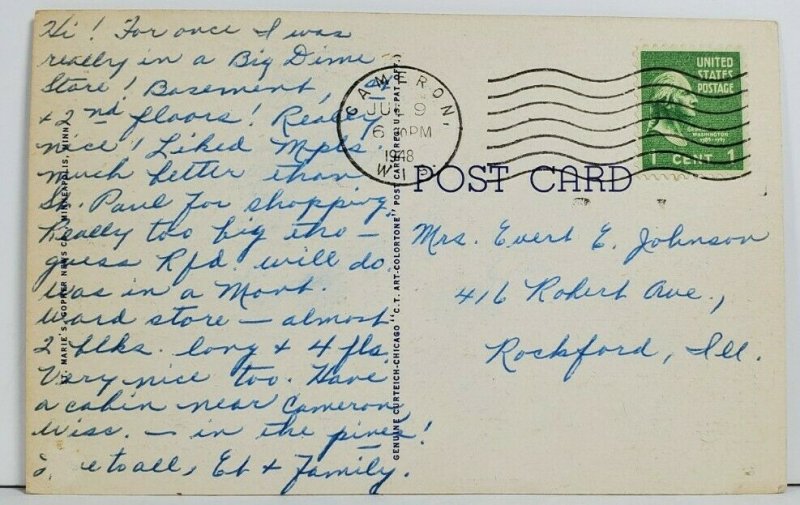 Hi! For once I was
really in a Big Dime
Store! Basement, 1st
+ 2nd floors! Really
nice! Liked Mpls.
much better than
St. Paul for shopping.
Really too big tho —
guess Rfd. will do.
Was in a Mont.
Ward store — almost
2 blks. long + 4 fls.
Very nice too. Have
a cabin near Cameron
Wisc. — in the pines!
to all, Et + Family.
MARIE'S GOPHER NEWS CO., MINNEAPOLIS, MINN.
GENUINE CURTEICH-CHICAGO "C.T. ART-COLORTONE" POST CARD (REG. U.S. PAT. OFF.)
CAMERON,
9
PM
1948
WIS.
UNITED
STATES
POSTAGE
WASHINGTON
1 CENT 1
POST CARD
Mrs. Evert E. Johnson
416 Robert Ave.,
Rockford, Ill.